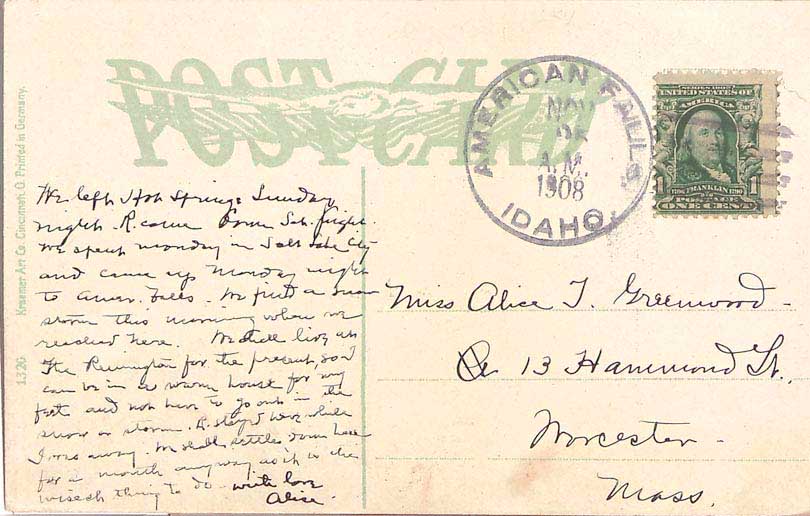 POST CARD
AMERICAN FALLS,
NOV
A.M.
1908
IDAHO.
SERIES 1902
UNITED STATES OF
AMERICA
1706 FRANKLIN 1790
POSTAGE
1 ONE CENT 1
We left Hot Springs Sunday
night. R. came down Sat. night.
We spent Monday in Salt Lake City
and came up Monday night
to Amer. Falls. We find a snow
storm this morning when we
reached here. We shall live at
The Remington for the present, so I
can be in a warm house for my
feet and not have to go out in the
snow or storm. R. stayed here while
I was away. We shall settle down here
for a month anyway as it is the
wisest thing to do. with love
Alice.
Miss Alice T. Greenwood
13 Hammond St.,
Worcester
Mass.
1326 Kraemer Art Co. Cincinnati, O. Printed in Germany.